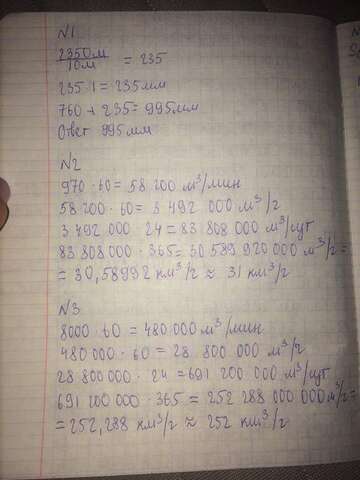 N1
2350м
10м = 235
235·1 = 235мм
760 + 235 = 995мм
Ответ 995мм
N2
970·60 = 58 200 м³/мин
58 200·60 = 3 492 000 м³/г
3 492 000·24 = 83 808 000 м³/сут
83 808 000·365 = 30 589 920 000 м³/г =
= 30,58992 км³/г ≈ 31 км³/г
N3
8000·60 = 480 000 м³/мин
480 000·60 = 28 800 000 м³/г
28 800 000·24 = 691 200 000 м³/сут
691 200 000·365 = 252 288 000 000 м³/г =
= 252,288 км³/г ≈ 252 км³/г